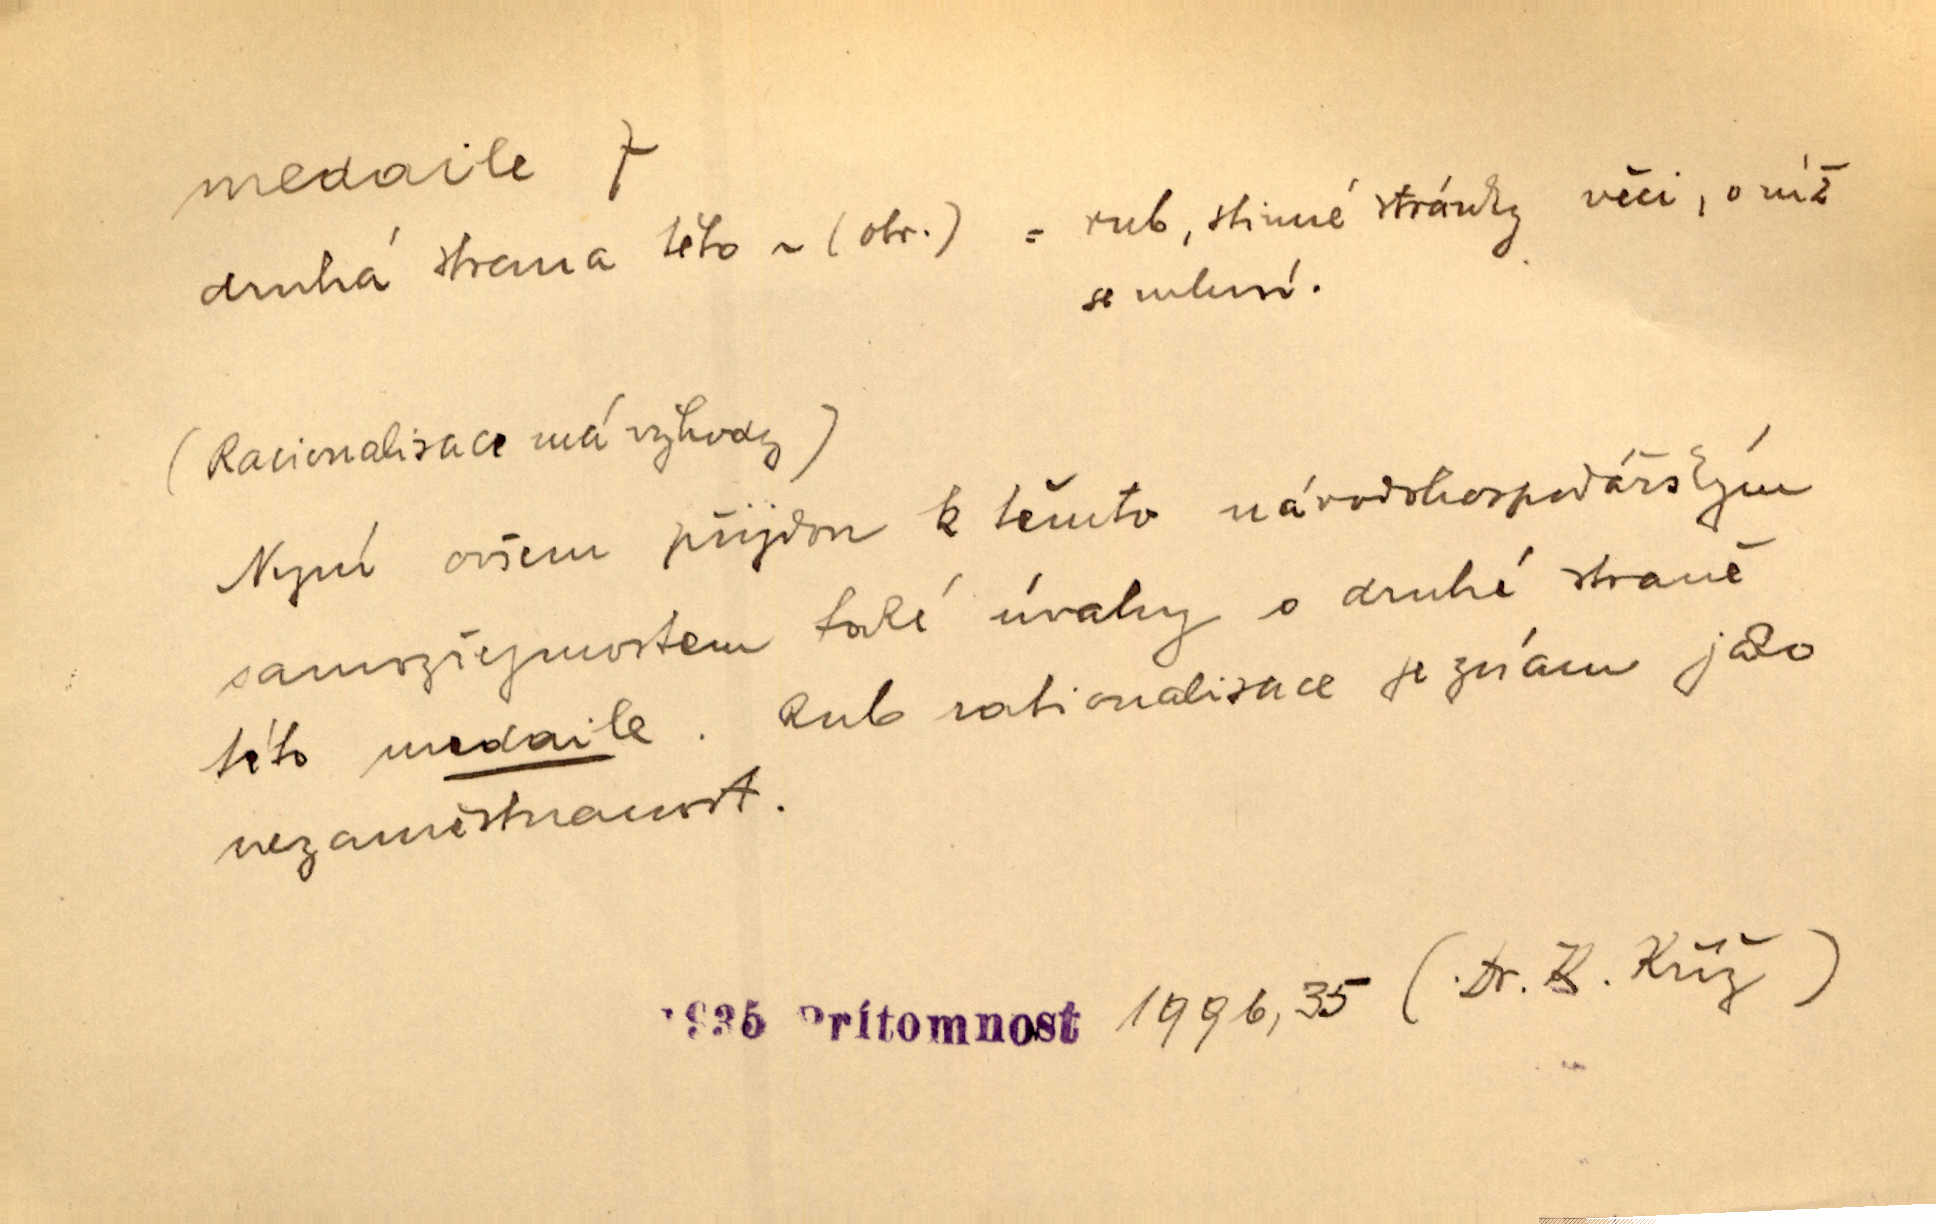 medaile f
druhá strana této ~ (obr.) = rub, stinné stránky věci, o níž
se mluví.
(Racionalisace má výhody)
Nyní ovšem přijdou k těmto národohospodářským
samozřejmostem také úvahy o druhé straně
této medaile. Rub rationalisace je znám jako
nezaměstnanost.
1935 Přítomnost 1996, 35 (Dr. K. Kříž)